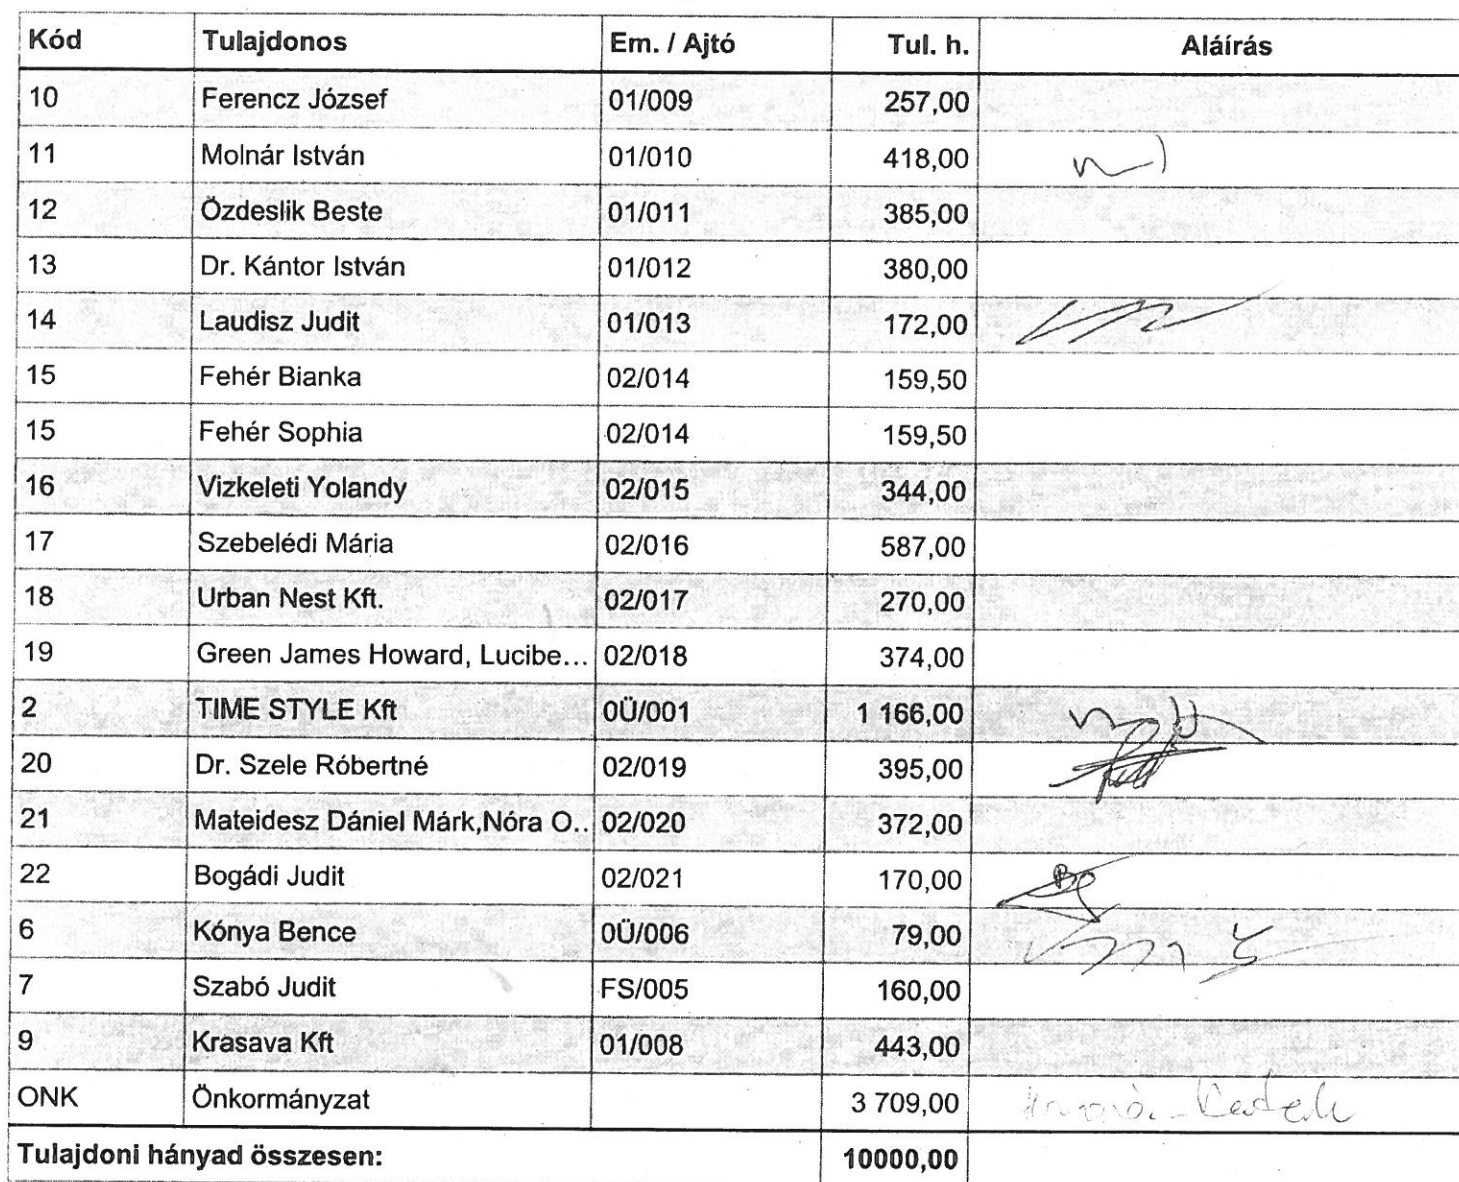 Kód Tulajdonos Em. / Ajtó Tul. h. Aláírás
10 Ferencz József 01/009 257,00
11 Molnár István 01/010 418,00
12 Özdeslik Beste 01/011 385,00
13 Dr. Kántor István 01/012 380,00
14 Laudisz Judit 01/013 172,00
15 Fehér Bianka 02/014 159,50
15 Fehér Sophia 02/014 159,50
16 Vizkeleti Yolandy 02/015 344,00
17 Szebelédi Mária 02/016 587,00
18 Urban Nest Kft. 02/017 270,00
19 Green James Howard, Lucibe... 02/018 374,00
2 TIME STYLE Kft 0Ü/001 1 166,00
20 Dr. Szele Róbertné 02/019 395,00
21 Mateidesz Dániel Márk,Nóra O.. 02/020 372,00
22 Bogádi Judit 02/021 170,00
6 Kónya Bence 0Ü/006 79,00
7 Szabó Judit FS/005 160,00
9 Krasava Kft 01/008 443,00
ONK Önkormányzat 3 709,00
Tulajdoni hányad összesen: 10000,00